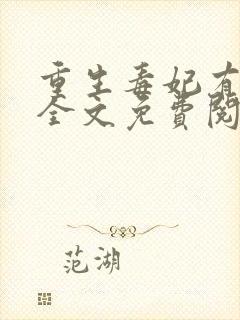 重生毒妃有
全文免費閱
范湖